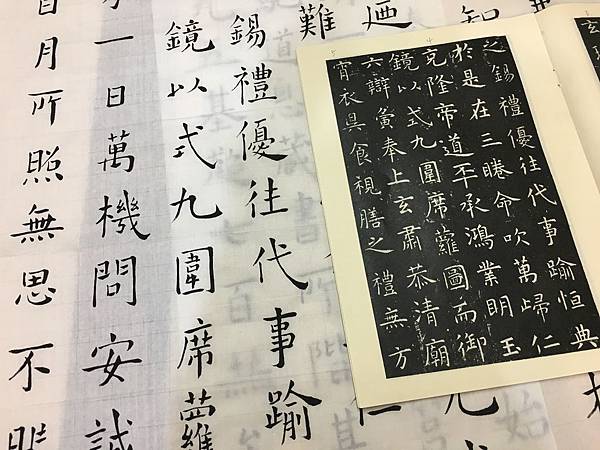 知
迺
難
錫禮優往代事踰
鏡以式九圍席蘿
一日萬機問安誠
日月所照無思不
之錫禮優往代事踰恒典
於是在三睠命吹萬歸仁
克隆帝道丕承鴻業明玉
鏡以式九圍席蘿圖而御
六辯寅奉上玄肅恭清廟
宵衣昃食視膳之禮無方
玄